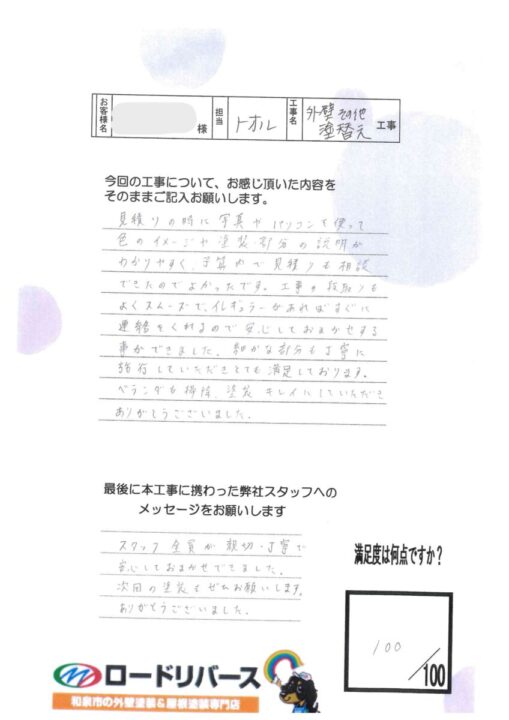 お客様名 様 担当 トオル 工事名 外壁その他塗替え 工事
今回の工事について、お感じ頂いた内容を
そのままご記入お願いします。
見積りの時に写真やパソコンを使って
色のイメージや塗装部分の説明が
わかりやすく、予算内で見積りも相談
できたのでよかったです。工事の段取りも
よくスムーズで、イレギュラーがあればすぐに
連絡をくれるので安心しておまかせする
事ができました。細かな部分も丁寧に
施行していただきとても満足しております。
ベランダも掃除、塗装 キレイにしていただき
ありがとうございました。
最後に本工事に携わった弊社スタッフへの
メッセージをお願いします
スタッフ全員が親切・丁寧で
安心しておまかせできました。
次回の塗装もぜひお願いします。
ありがとうございました。
満足度は何点ですか?
100
/100
ロードリバース
和泉市の外壁塗装&屋根塗装専門店